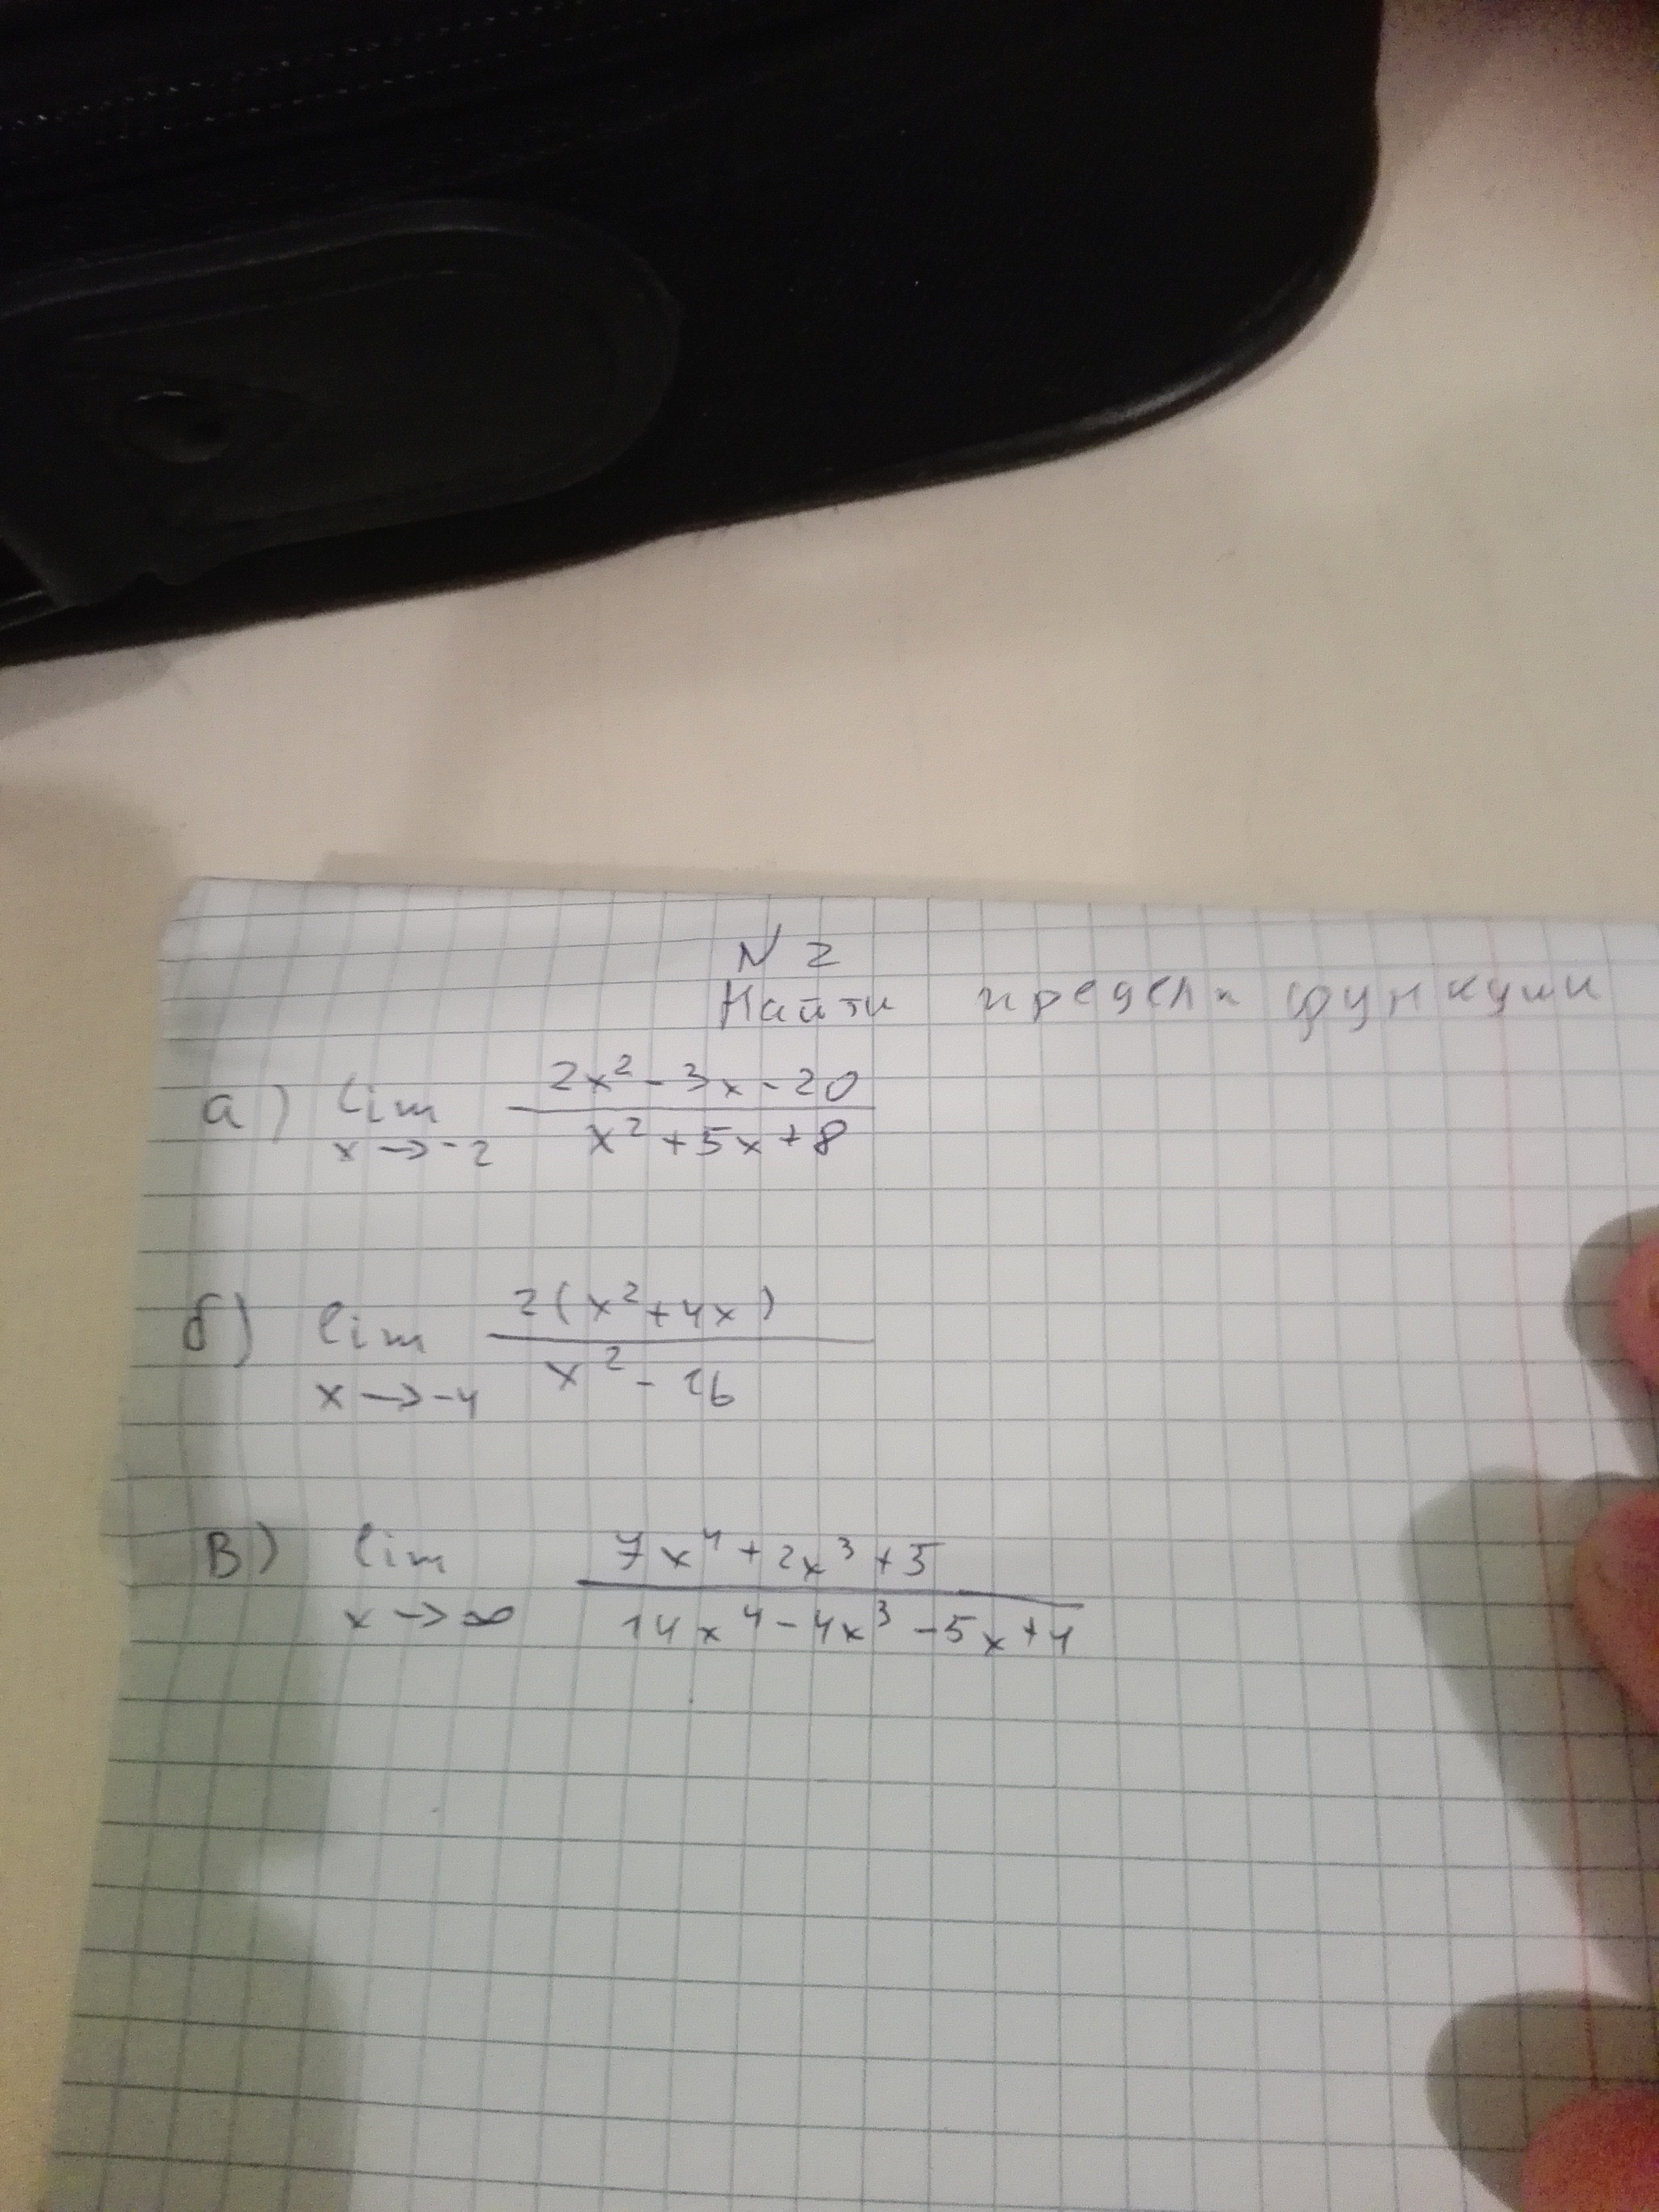 N 2
Найти пределы функции
а) lim x → -2 (2x² - 3x - 20) / (x² + 5x + 8)
б) lim x → -4 2(x² + 4x) / (x² - 16)
в) lim x → ∞ (7x⁴ + 2x³ + 5) / (14x⁴ - 4x³ - 5x + 4)